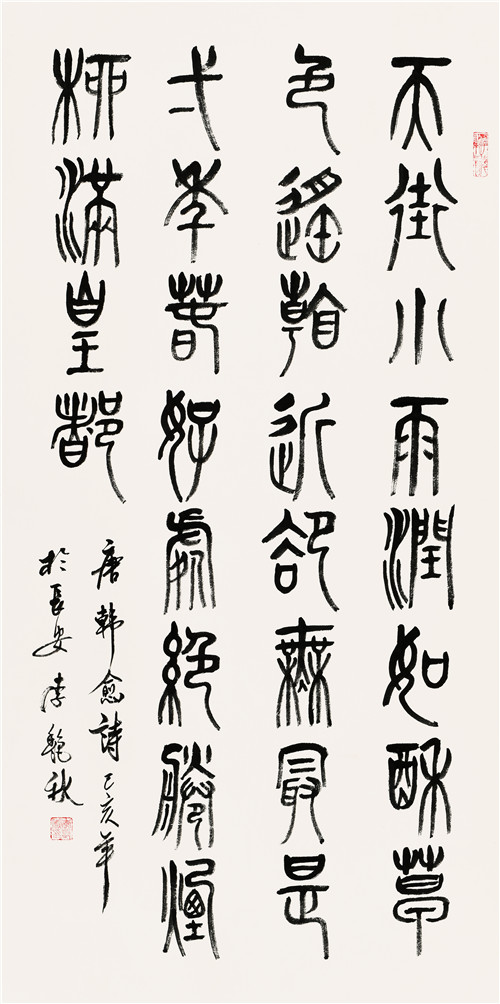 天街小雨潤如酥草
色遙看近卻無最是
弌年春好處絕勝煙
柳滿皇都
唐韓愈詩己亥年
於長安李秋